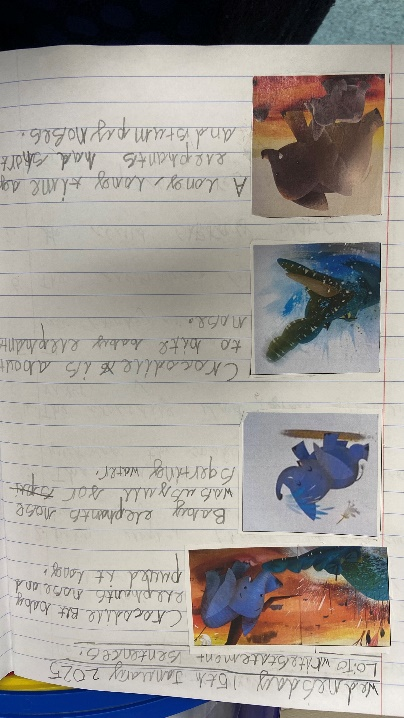 Wednesday 15th January 2025
LO: to write statement
sentences.
Crocodile bit baby
elephants nose and
pulled it long.
Baby elephants nose
was usfull for
sqerting water.
Crocodile is about
to bite baby elephant
nose.
A long, long time ag
elephants had short
and stumpy noses.